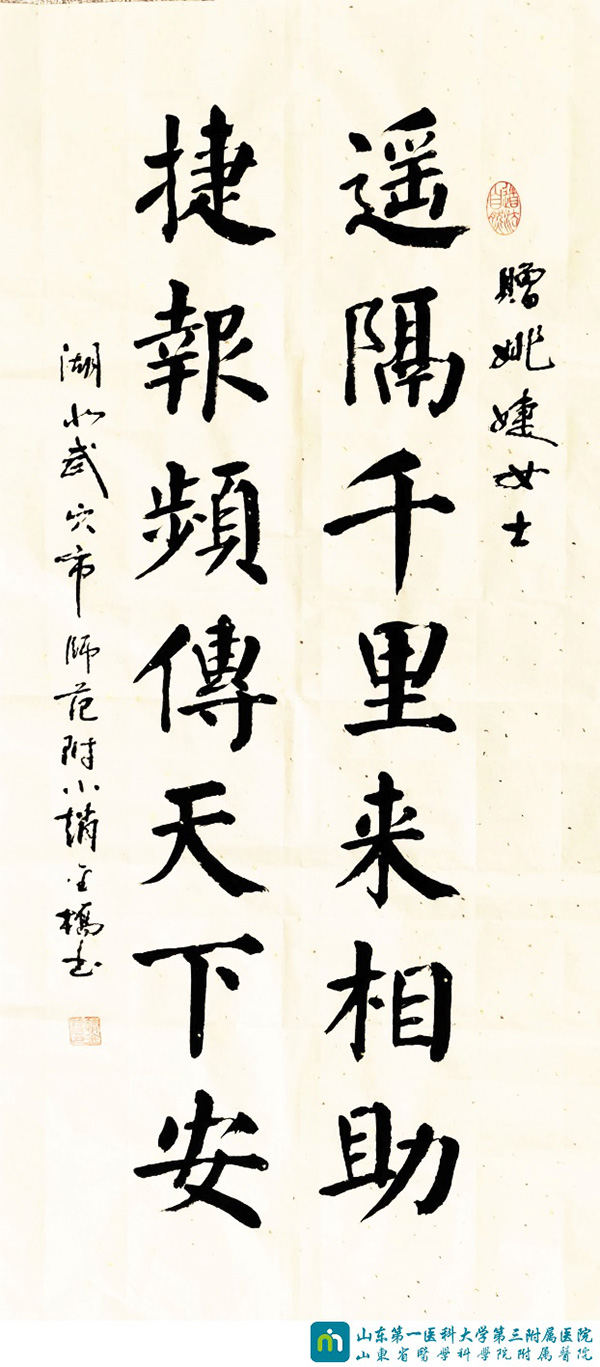 道法自然
贈姚婕女士
遥隔千里来相助
捷報頻傳天下安
湖北武穴市師范附小趙金橋书
山东第一医科大学第三附属医院
山東省醫學科學院附屬醫院